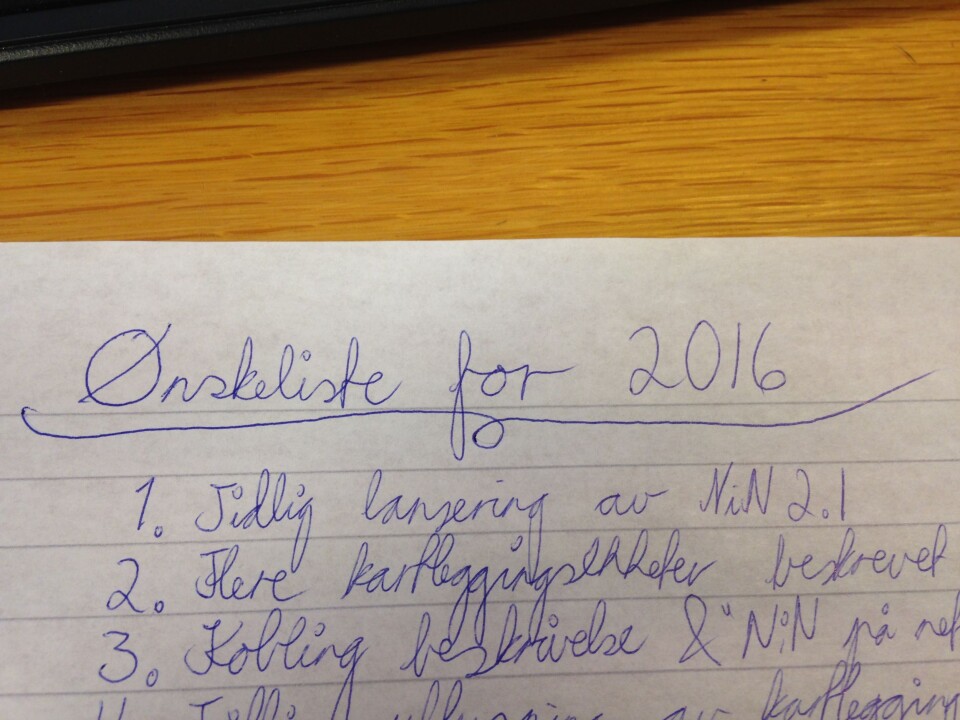 Ønskeliste for 2016
1. Tidlig lansering av NiN 2.1
2. Flere kartleggingsenheter beskrevet
3. Kobling beskrivelse & "NiN på net
4. Tidlig av kartlegging